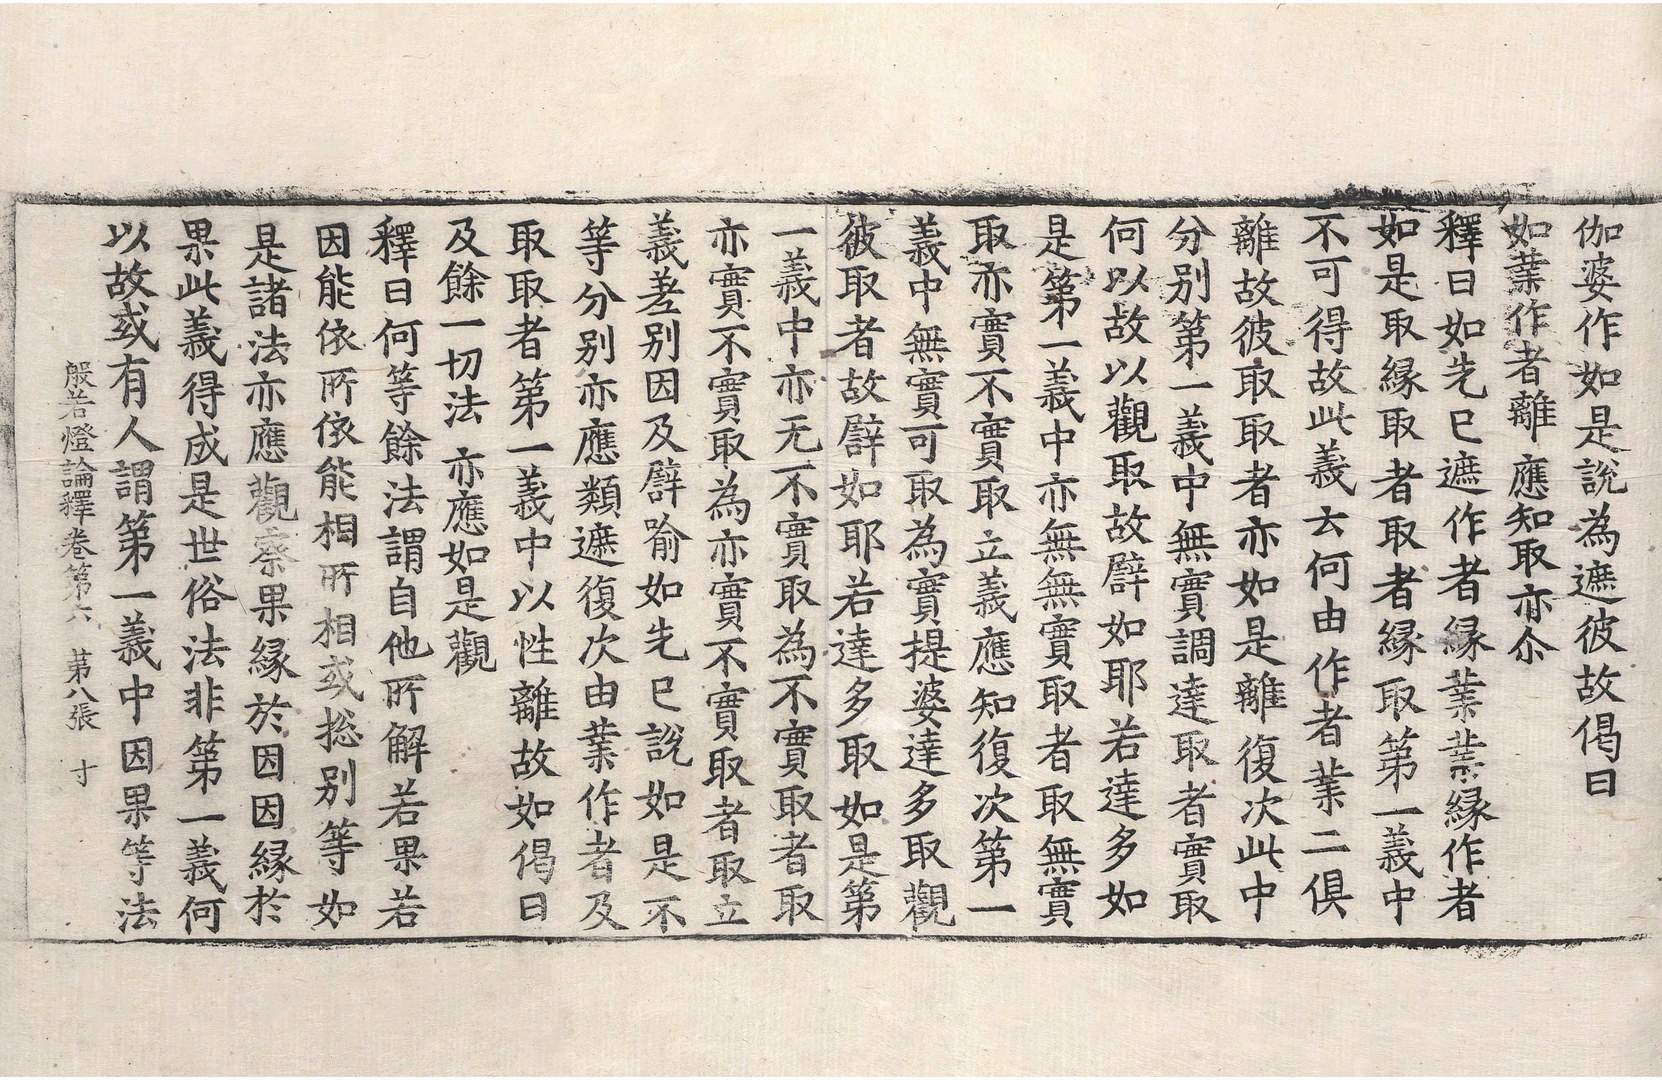 伽婆作如是說為遮彼故偈曰
如業作者離應知取亦尒
釋曰如先已遮作者縁業業縁作者
如是取縁取者取者縁取第一義中
不可得故此義云何由作者業二俱
離故彼取取者亦如是離復次此中
分別第一義中無實調達取者實取
何以故以觀取故譬如耶若達多如
是第一義中亦無無實取者取無實
取亦實不實取立義應知復次第一
義中無實可取為實提婆達多取觀
彼取者故譬如耶若達多取如是第
一義中亦无不實取為不實取者取
亦實不實取為亦實不實取者取立
義差別因及譬喻如先已說如是不
等分別亦應類遮復次由業作者及
取取者第一義中以性離故如偈曰
及餘一切法亦應如是觀
釋曰何等餘法謂自他所解若果若
因能依所依能相所相或捴別等如
是諸法亦應觀察果縁於因因縁於
果此義得成是世俗法非第一義何
以故或有人謂第一義中因果等法
般若燈論釋卷第六 第八張 寸